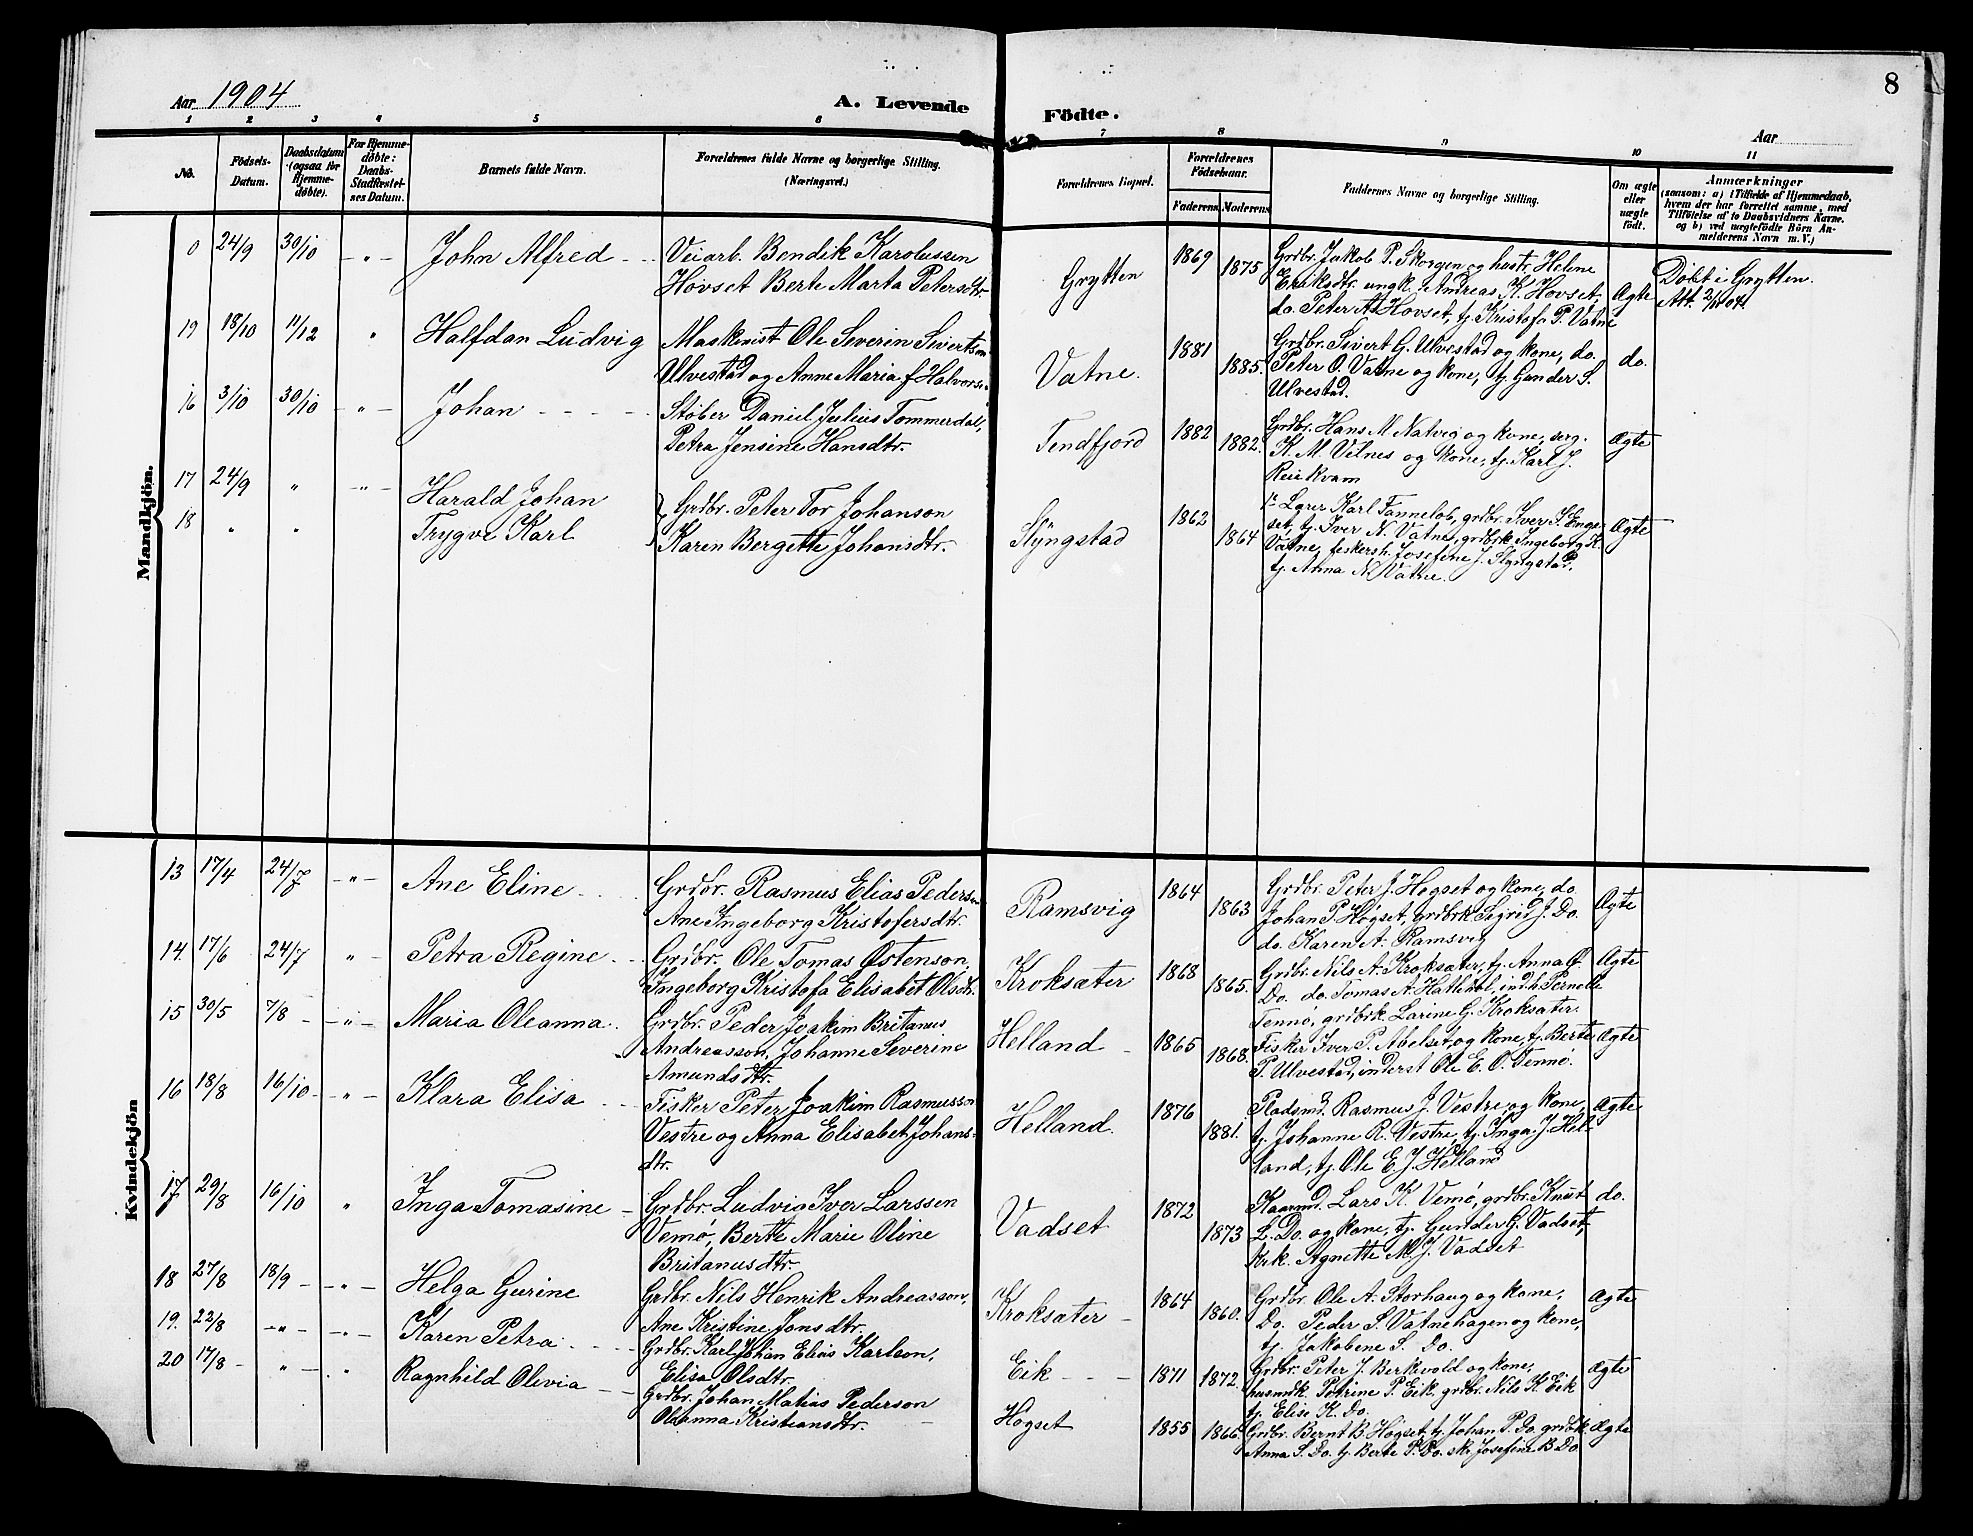 Aar 1904
A. Levende
Födte.
8
Aar
1 2 3 4 5 6 7 8 9 10 11
No.
Fødsels-
Datum.
Daabsdatum
(ogsaa for
Hjemme-
døbte).
For Hjemme-
døbte:
Daabs-
Stadfæstel-
ses Datum.
Barnets fulde Navn.
Forældrenes fulde Navne og borgerlige Stilling.
(Næringsvei.)
Forældrenes Bopæl.
Forældrenes
Fødselsaar.
Faderens
Moderens
Faddernes Navne og borgerlige Stilling.
Om ægte
eller
uægte
født.
Anmærkninger
(saasom: a) i Tilfælde af Hjemmedaab,
hvem der har forrettet samme, med
Tilføielse af to Daabsvidners Navne.
og b) ved uægtefødte Börn An-
melderens Navn m. V.)
Mandkjön.
0 24/9 30/10 - " - John Alfred - -
Veiarb. Bendik Karolussen
Hovset Berte Marta Petersdtr.
Grytten 1869 1875
Grdbr. Jakob P. Skorgen og hustr. Helene
Eriksdtr. ungk. Andreas K. Hovset,
do. Peter A. Hovset, tj. Kristofa P. Vatne
Ægte
Døbt i Grytten.
Att. 2/11 04.
19 18/10 11/12 " Halfdan Ludvig
Maskinist Ole Severin Sivertsen
Ulvestad og Anne Maria f. Halvorsen
Vatne. 1881 1885.
Grdbr. Sivert G. Ulvestad og kone, do.
Peter O. Vatne og kone, tj. Gunder S.
Ulvestad.
do.
16 3/10 30/10 - " - Johan - - - -
Støber Daniel Julius Tommerdal,
Petra Jensine Hansdtr.
Tendfjord 1882 1882.
Grdbr. Hans M. Natvig og kone, serg.
K. M. Velnes og kone, tj. Karl J.
Reiekvam
Ægte
17 24/9 " - " - Harald Johan
18 " " Trygve Karl
Grdbr. Peter Tor Johanson
Karen Bergette Johansdtr.
Slyngstad 1862 1864
Lærer Karl Fanneløb, grdbr. Iver S. Enge-
set, tj. Iver N. Vatne, grdbrk. Ingeborg K.
Vatne, fiskersh. Josefine J. Slyngstad,
tj. Anna N. Vatne.
Ægte
Kvindekjön
13 17/4 24/7 - " - Ane Eline - - -
Grdbr. Rasmus Elias Pederson
Ane Ingeborg Kristofersdtr.
Ramsvig 1864 1863
Grdbr. Peter J. Høgset og kone, do.
Johan P. Høgset, grdbrk. Sigrid J. Do.
do. Karen A. Ramsvig
Ægte
14. 17/6 24/7 " Petra Regine - -
Grdbr. Ole Tomas Østenson,
Ingeborg Kristofa Elisabet Olsdtr.
Kroksæter 1868 1865.
Grdbr. Nils A. Kroksæter, tj. Anna O.
Do. do. Tomas A. Hatlehol, indh. Pernelle
Tennø, grdbrk. Larine G. Kroksæter.
Ægte
15 30/5 7/8 - - " - Maria Oleanna -
Grdbr. Peder Joakim Britanus
Andreasson, Johanne Severine
Amundsdtr.
Helland - 1865 1868.
Fisker Iver P. Abelset og kone, tj. Berte
P. Ulvestad, inderst Ole E. O. Tennø.
Ægte
16 18/8 16/10 - " - Klara Elisa - -
Fisker Peter Joakim Rasmusson
Vestre og Anna Elisabet Johans-
dtr.
Helland. 1876 1881.
Pladsmd. Rasmus J. Vestre og kone,
tj. Johanne R. Vestre, tj. Inga J. Hel-
land, tj. Ole E. J. Helland
Ægte
17 29/8 16/10 " Inga Tomasine -
Grdbr. Ludvig Iver Larssen
Vemø, Berte Marie Oline
Britanusdtr.
Vadset 1872 1873
Kaarmd. Lars K. Vemø, grdbr. Knut
L. Do. og kone, tj. Gunder G. Vadset,
krk. Agnette M. J. Vadset
do.
18 27/8 18/9 - - " - Helga Gurine
Grdbr. Nils Henrik Andreasson,
Ane Kristine Jonsdtr.
Kroksæter - 1864 1860.
Grdbr. Ole A. Storhaug og kone,
Do. Peder S. Vatnehagen og kone,
tj. Jakobene S. Do.
Ægte
19. 22/8 - " - - " - Karen Petra - - -
Grdbr. Karl Johan Elias Karlson,
Elisa Olsdtr.
Eik - - - 1871 1872.
Grdbr. Peter J. Berkvold og kone,
husmdk. Petrine P. Eik, grdbr. Nils K. Eik
tj. Elise K. Do.
Ægte
20 17/8 - " - " Ragnhild Olivia - -
Grdbr. Johan Matias Pederson
Oleanna Kristiansdtr.
Høgset 1855 1866.
Grdbr. Bernt B. Høgset, tj. Johan P. Do. grdbrk.
Anna S. Do. tj. Berte P. Do. sk. Josefine B. Do
Ægte